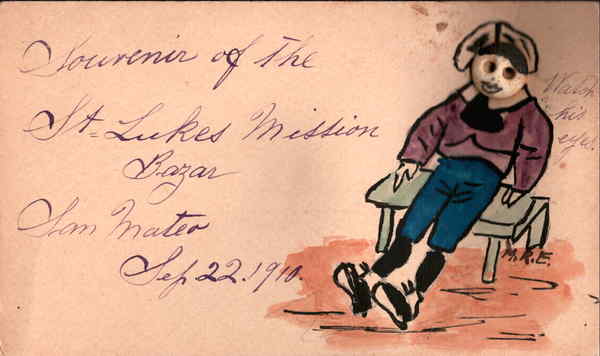 Souvenir of the
St. Lukes Mission
Bazar
San Mateo
Sep 22. 1910.
Watch
his
eyes.
M.R.E.